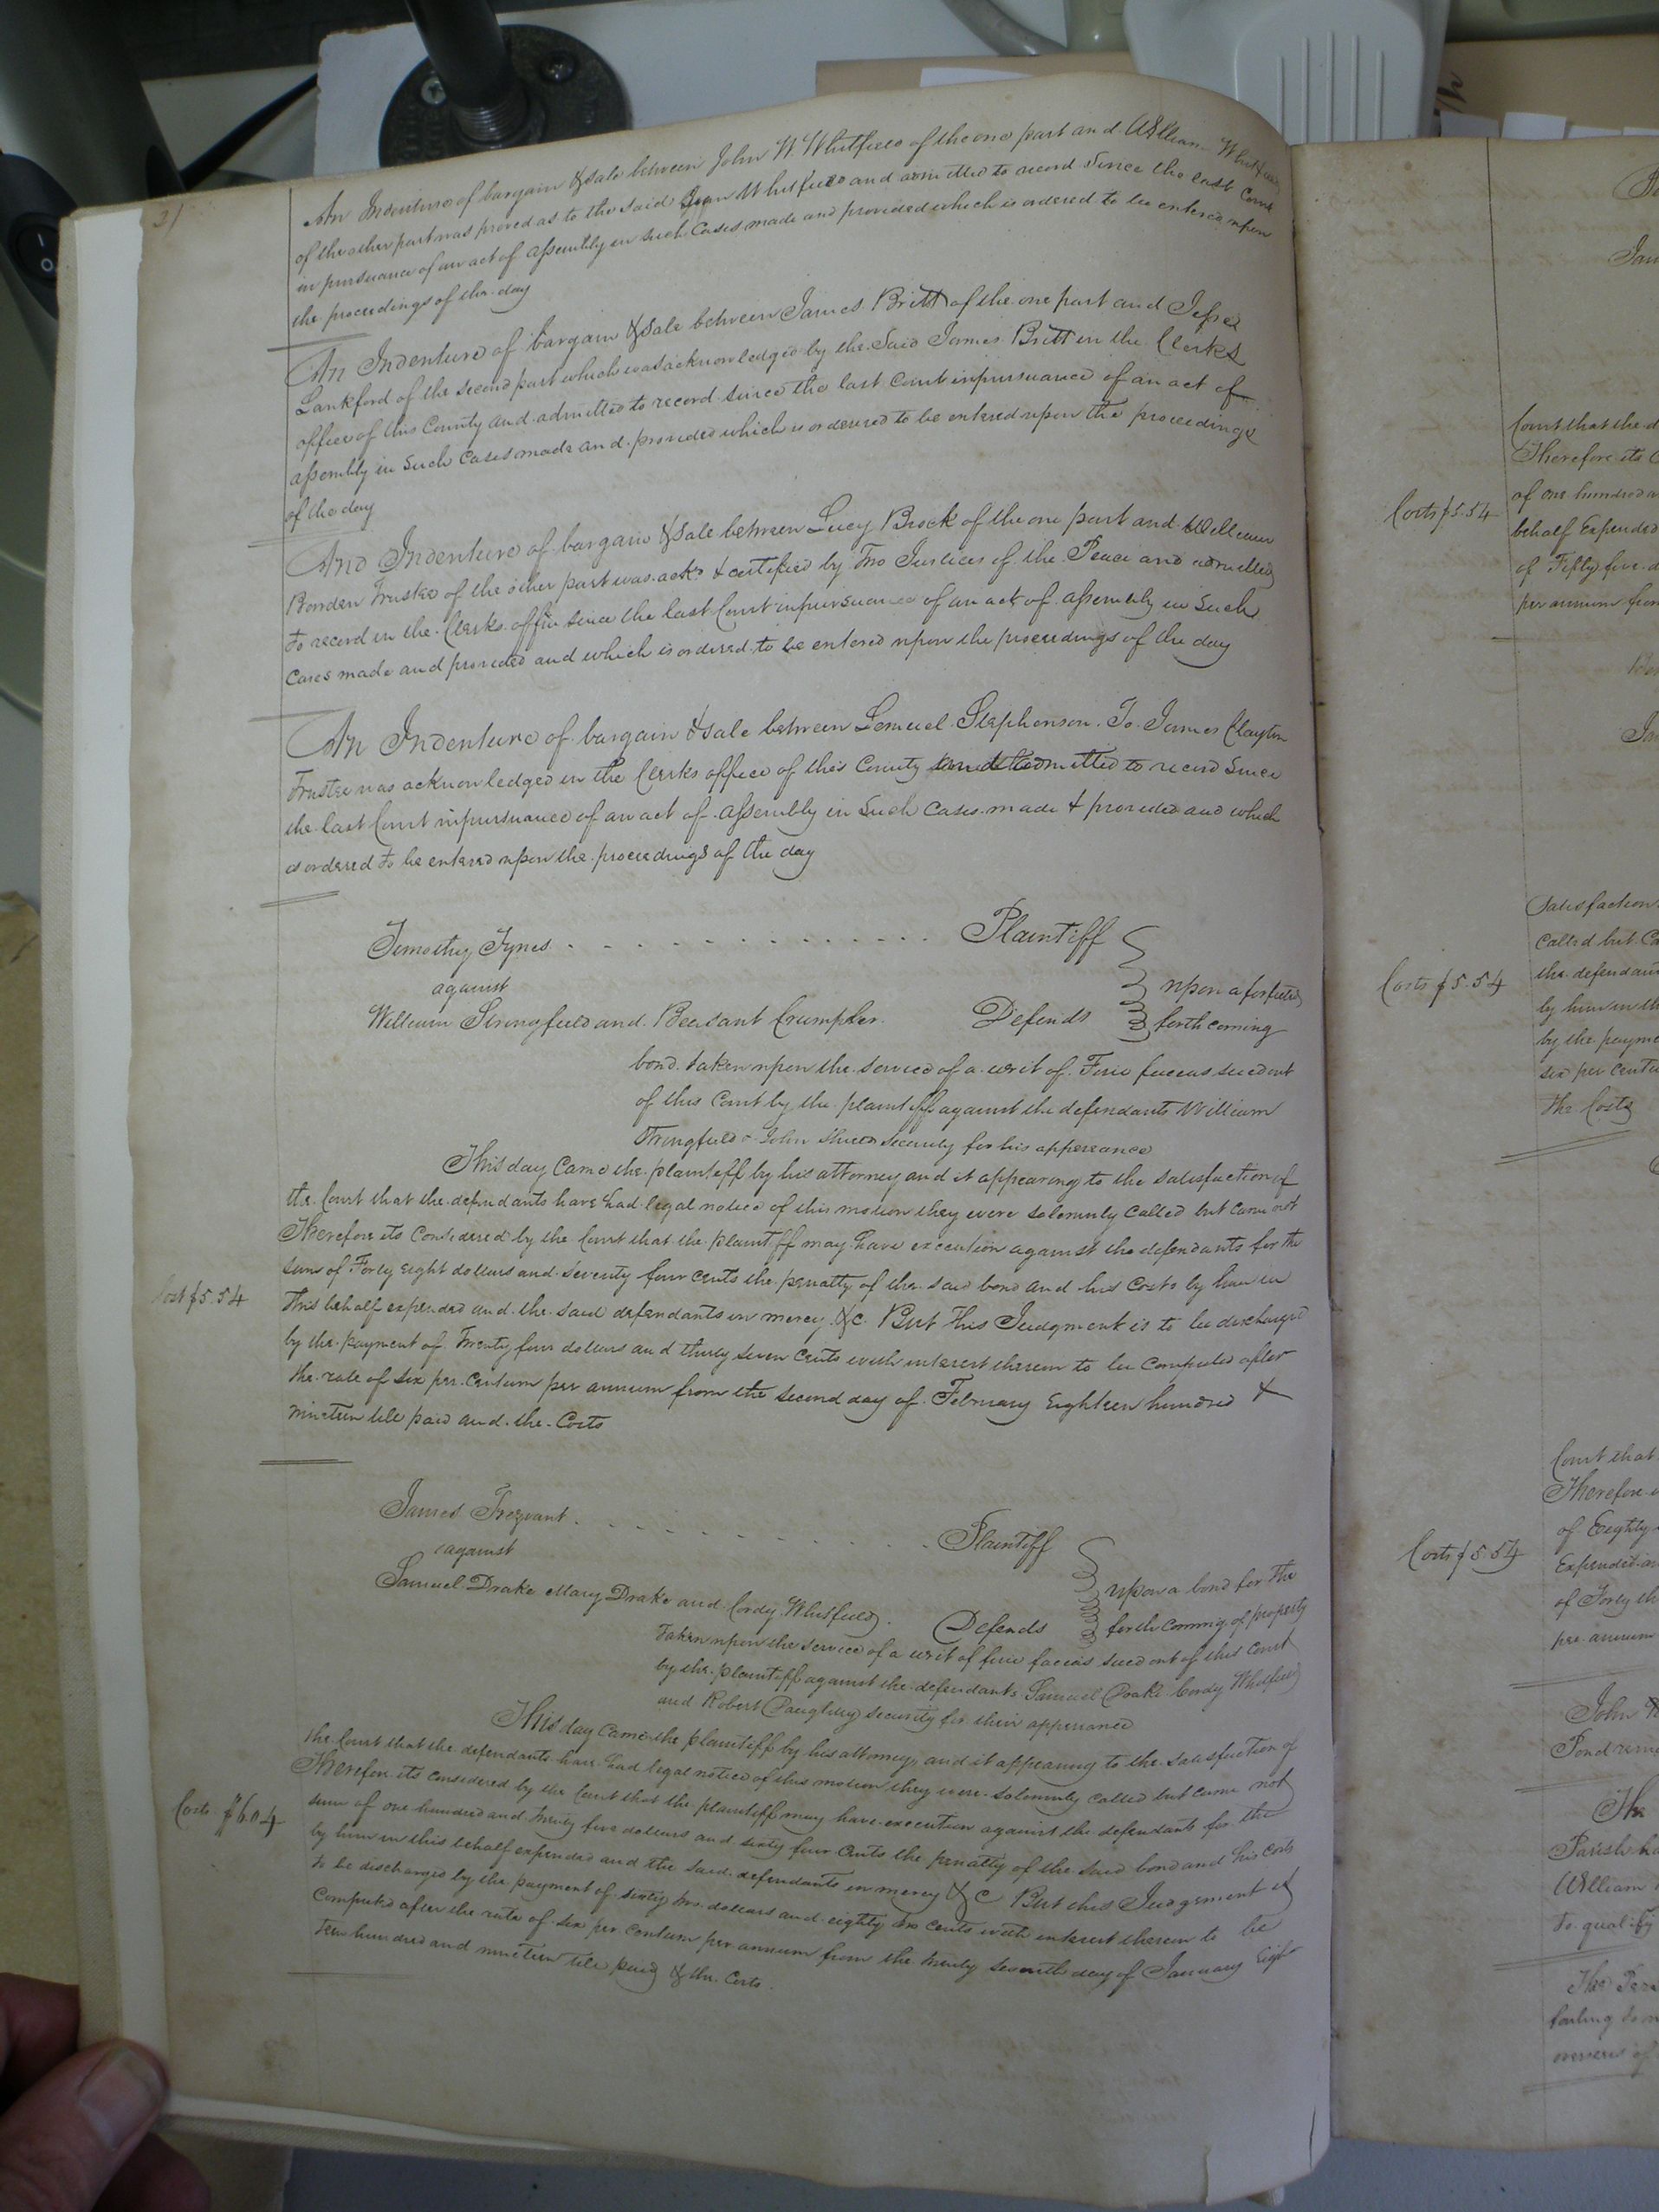 31
An Indenture of bargain & sale between John W. Whitfield of the one part and William Whitfield
of the other part was proved as to the said Whitfield and admitted to record since the last Court
in pursuance of an act of assembly in such Cases made and provided which is ordered to be entered upon
the proceedings of the day
An Indenture of bargain & sale between James Britt of the one part and Jesse
Lankford of the second part which was acknowledged by the Said James Britt in the Clerks
office of this County and admitted to record since the last Court in pursuance of an act of
assembly in Such Cases made and provided which is ordered to be entered upon the proceedings
of the day
And Indenture of bargain & sale between Lucy Brock of the one part and William
Bowden Trustee of the other part was ackd & certified by Two Justices of the Peace and admitted
to record in the Clerks office since the last Court in pursuance of an act of assembly in Such
Cases made and provided and which is ordered to be entered upon the proceedings of the day
An Indenture of bargain & sale between Lemuel Stephenson To James Clayton
Trustee was acknowledged in the Clerks office of this County admitted to record Since
the last Court in pursuance of an act of assembly in Such Cases made & provided and which
is ordered to be entered upon the proceedings of the day
Timothy Tynes . . . . . . . . . . . . . Plaintiff
against
upon a forfeited
William Stringfield and Beasant Crumpler Defends
forthcoming
bond taken upon the service of a writ of Fieri facias sued out
of this Court by the plaintiff against the defendants William
Stringfield & John security for his appearance
This day Came the plaintiff by his attorney and it appearing to the satisfaction of
the Court that the defendants have had legal notice of this motion they were solemnly called but came not
Therefore its Considered by the Court that the plaintiff may have execution against the defendants for the
sum of Forty Eight dollars and Seventy four cents the penalty of the said bond and his Costs by him in
Cost $5.54
this behalf expended and the said defendants in mercy &c. But this Judgment is to be discharged
by the payment of Twenty four dollars and thirty seven Cents with interest thereon to be Computed after
the rate of six per Centum per annum from the second day of February Eighteen hundred &
nineteen till paid and the Costs
James Trezvant . . . . . . . . . . Plaintiff
against
Samuel Drake Mary Drake and Cordy Whitfield . Defends
upon a bond for the
forthcoming of property
Taken upon the service of a writ of fieri facias sued out of this Court
by the plaintiff against the defendants Samuel Drake Cordy Whitfield
and Robert security for their appearance
This day Came the plaintiff by his attorney, and it appearing to the satisfaction of
the Court that the defendants have had legal notice of this motion they were solemnly called but came not
Therefore its considered by the Court that the plaintiff may have execution against the defendants for the
Costs $6.04
sum of one hundred and twenty five dollars and sixty four Cents the penalty of the said bond and his Costs
by him in this behalf expended and the said defendants in mercy &c But this Judgement is
to be discharged by the payment of sixty two dollars and eighty two cents with interest thereon to be
Computed after the rate of six per Centum per annum from the twenty seventh day of January Eigh
teen hundred and nineteen till paid & the Costs.
Court that the d
Therefore its C
of one hundred a
Costs $5.54
behalf Expended
of Fifty five d
per annum from
Satisfaction
Called but Ca
Costs $5.54
the defendant
by him in th
by the payme
six per Centu
the Costs
Court that
Therefore
of Eighty
Costs $5.54
Expended a
of Forty th
per annum
John
The
Parish
William
to qualify